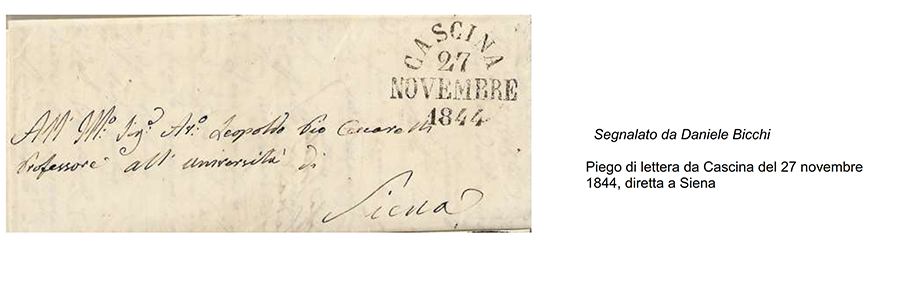 CASCINA
27
NOVEMBRE
1844
All' Ill.º Sig.º Av.º Leopoldo Pio
Professore all' università di
Siena
Segnalato da Daniele Bicchi
Piego di lettera da Cascina del 27 novembre
1844, diretta a Siena